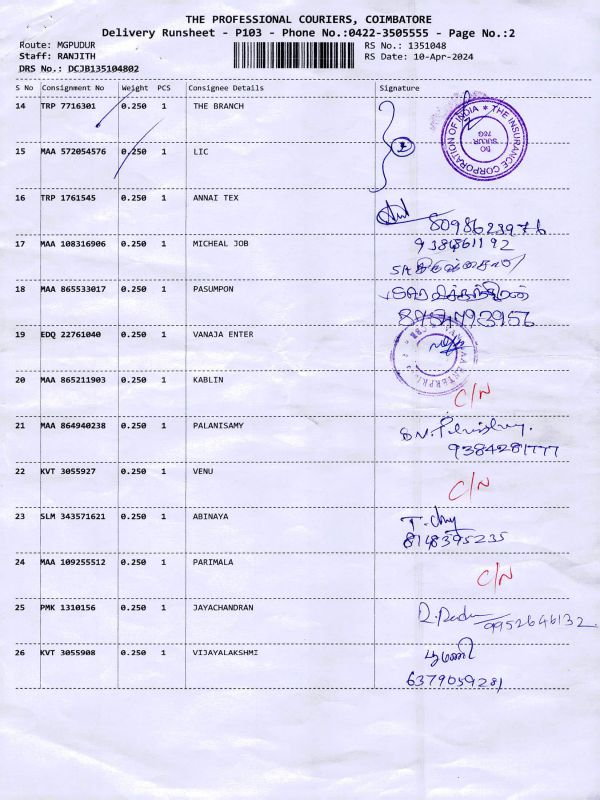 THE PROFESSIONAL COURIERS, COIMBATORE
Delivery Runsheet - P103 - Phone No.:0422-3505555 - Page No.:2
Route: MGPUDUR
RS No.: 1351048
Staff: RANJITH
RS Date: 10-Apr-2024
DRS No.: DCJB135104802
S No Consignment No Weight PCS Consignee Details Signature
14 TRP 7716301 0.250 1 THE BRANCH
THE INSURANCE CORPORATION OF INDIA
15 MAA 572054576 0.250 1 LIC
16 TRP 1761545 0.250 1 ANNAI TEX
8098623976
17 MAA 108316906 0.250 1 MICHEAL JOB
9384861192
18 MAA 865533017 0.250 1 PASUMPON
19 EDQ 22761040 0.250 1 VANAJA ENTER
20 MAA 865211903 0.250 1 KABLIN
C/N
21 MAA 864940238 0.250 1 PALANISAMY
9384281777
22 KVT 3055927 0.250 1 VENU
C/N
23 SLM 343571621 0.250 1 ABINAYA
8148395235
24 MAA 109255512 0.250 1 PARIMALA
C/N
25 PMK 1310156 0.250 1 JAYACHANDRAN
9952646132
26 KVT 3055908 0.250 1 VIJAYALAKSHMI
6379059281